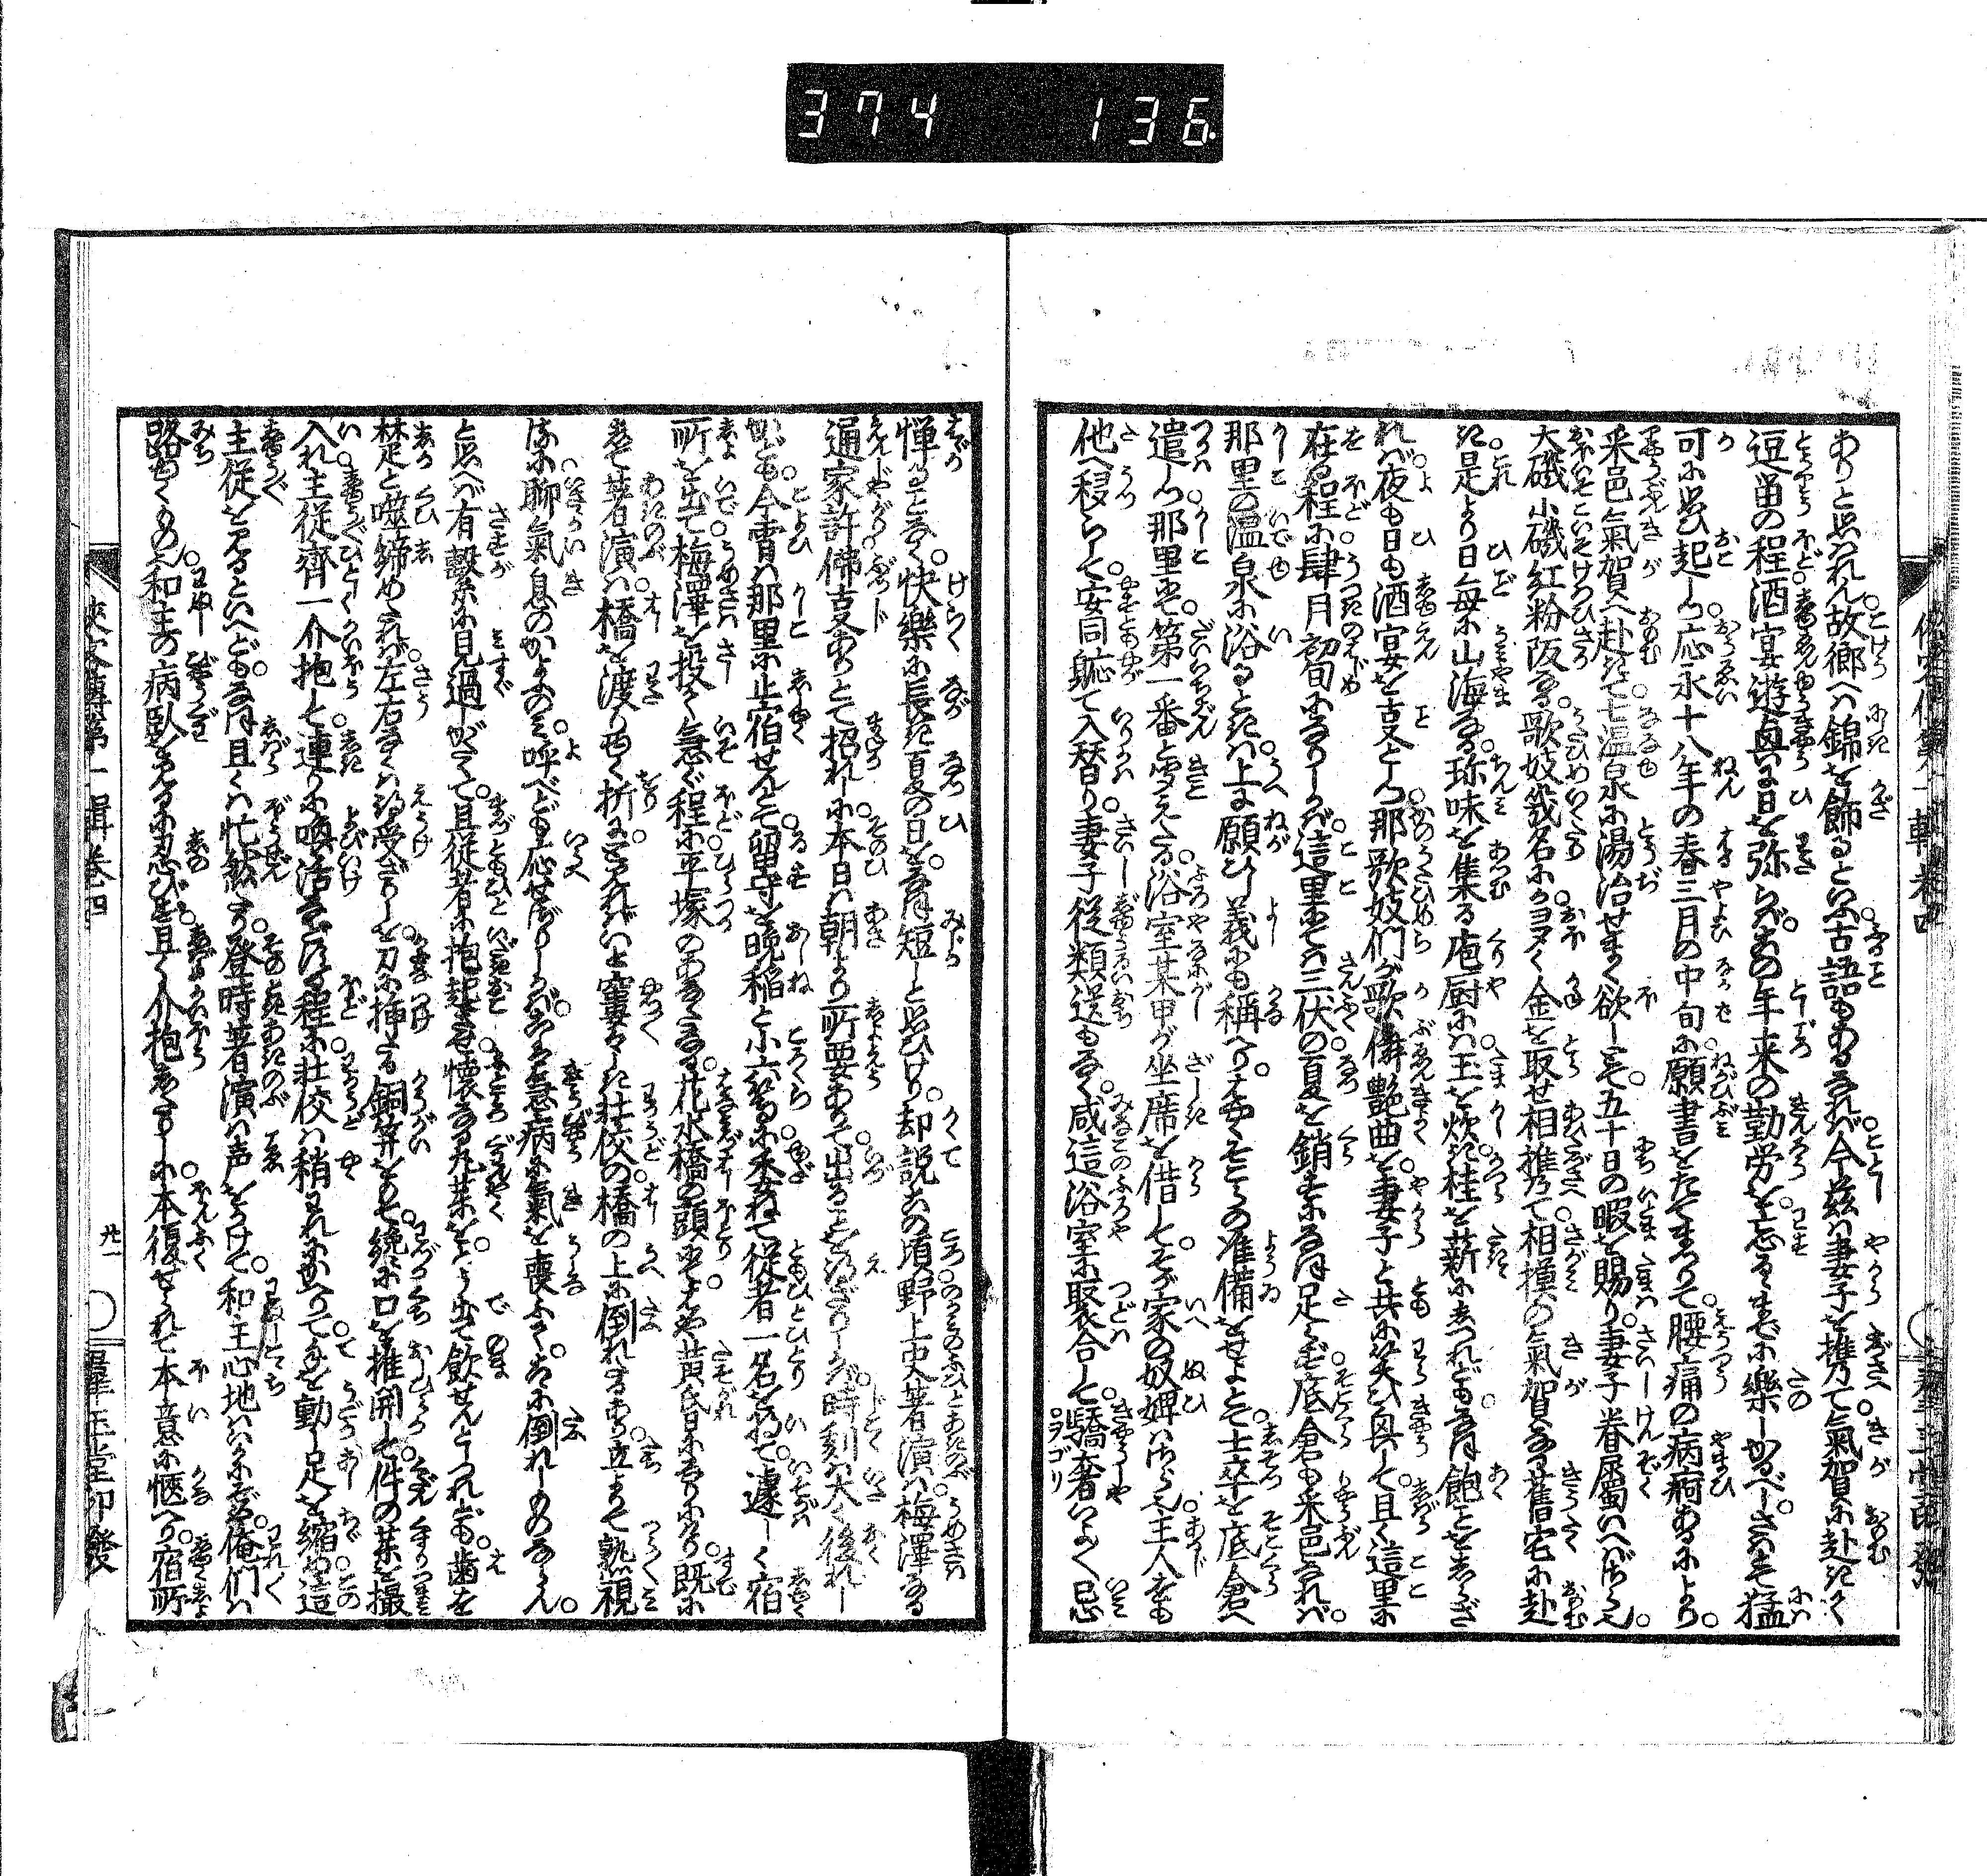 374 136
ありと思はれん。故郷へは錦を飾るといふ古語もあるなれば。今茲は妻子を携て。氣賀に赴きて
逗留の程酒宴遊興に日を弥らば。あの年来の勤労を。忘るゝまでに樂しかるべし。さはとて猛
可に思ひ起しつ。応永十八年の春三月の中旬に。願書をたてまつりて。腰痛の病痾あるにより。
采邑氣賀へ赴きて。七温泉に湯治せまく欲しとて。五十日の暇を賜り。妻子眷属いへばさら也。
大磯小磯紅粉阪なる。歌妓幾名にか。金を取せ相携て。相摸の氣賀なる舊宅に赴
き。是より日毎に山海なる。珎味を集る庖厨には。玉を炊き桂を薪にしつれども。なほ飽ことをしらざ
れば。夜も日も酒宴を事としつ。那歌妓們が歌舞艶曲を。妻子と共に笑ひ興じて。且く這里に
在る程に。肆月初旬になりしかば。這里にては三伏の夏を銷すになほ足らず。底倉も采邑なれば。
那里の温泉に浴るときは。上に願ひし義にも稱へり。とくそこらの准備をせよとて。士卒を底倉へ
遣しつ。那里にて。第一番と聞えたる。浴室某甲が坐席を借して。そが家の奴婢はさら也。主人をも
他へ移らして。安同軈て入替り。妻子従類送もなく。咸這浴室に聚合して。驕奢いよ〳〵忌
ヲゴリ
憚ることなく。快樂に長き夏の日を。なほ短しと思ひけり。却説。この頃野上史著演は。梅澤なる
通家許佛事ありとて招れしに。本日は朝より所要ありて。出ることを得ざりしが。時刻大く後れし
かども。今宵は那里に止宿せんとて。留守を晩稲と小六等に委ねて。従者一名を将て。遽しく宿
所を出て。梅澤を投て急ぐ程に。平塚のあなたなる。花水橋の頭にて。はや黄昏になりにけり。既に
して著演は。橋を渡りゆく折に。と見ればいと窶々しき壮佼の。橋の上に倒れてあり。立よりて熟視
るに。聊氣息のかよふのみ。呼べども応せざりしかば。こは急病に氣を喪ふて。こゝに倒れしものならん。
と思へば有繋に見過しがたくて。且従者に抱起させ。懐なる丸薬を。とう出て飲せんとしつれども。歯を
楚と噬締めたれば。左右なくは得受ざりしを。刀に挿たる銅笄をもて。纔に口を推開して。件の薬を撮
入れ。主従齊一介抱して。連りに喚活る程に。壮佼は稍われにかへりて。手を動し足を縮め。這
主従を見るといへども。なほ且くは忙然たり。登時著演は声をかけて。和主心地はいかにぞや。俺們は
路ゆくもの也。和主の病臥を見るに忍びず。且く介抱したりしに。本復せられて本意に愜へり。宿所
俠客傳第一輯卷四
廿一
群玉堂印發